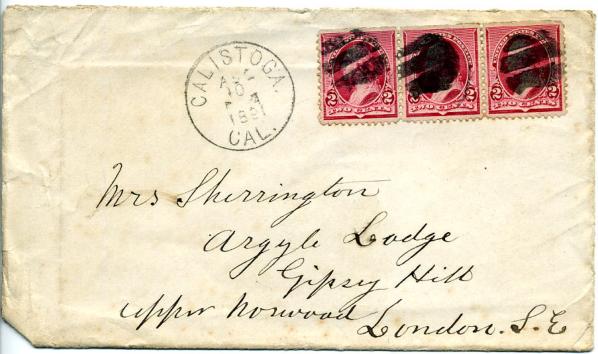 CALISTOGA.
AUG
10
1891
CAL.
2 TWO CENTS 2
2 TWO CENTS 2
2 TWO CENTS 2
Mrs Sherrington
Argyle Lodge
Gipsy Hill
upper Norwood
London. S. E